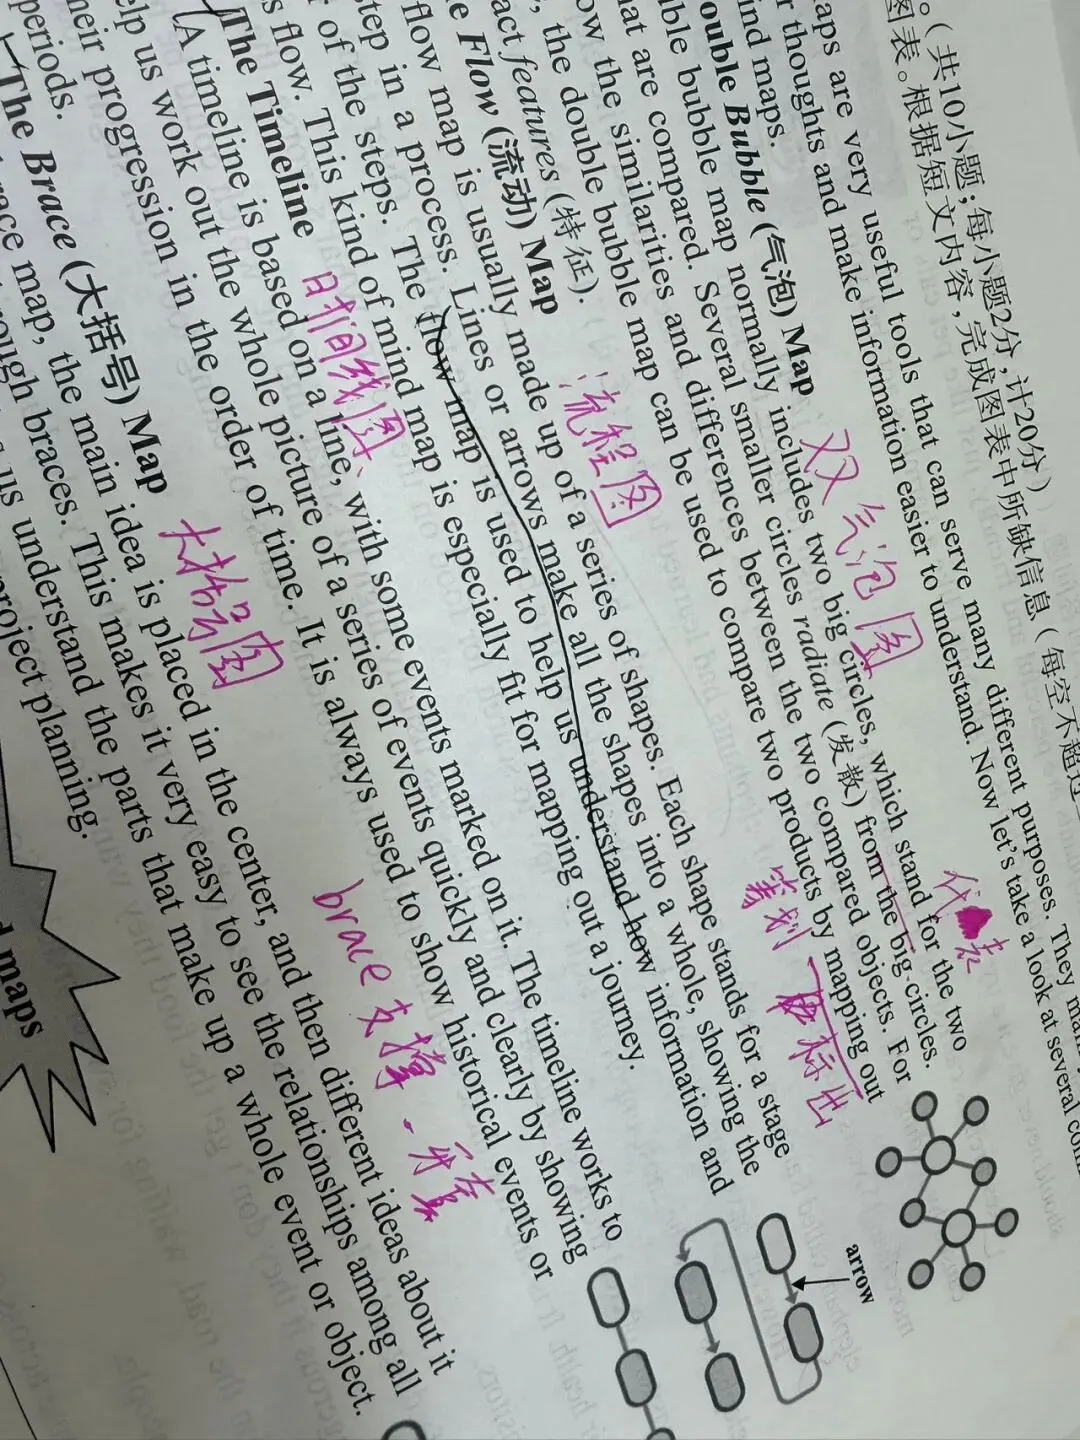 。(共10小题;每小题2分,计20分)
图表。根据短文内容,完成图表中所缺信息(每空不超过
maps are very useful tools that can serve many different purposes. They
thoughts and make information easier to understand. Now let's take a look at several
mind maps.
Double Bubble (气泡) Map
双气泡图
代表
double bubble map normally includes two big circles, which stand for the two
that are compared. Several smaller circles radiate (发散) from the big circles.
show the similarities and differences between the two compared objects. For
, the double bubble map can be used to compare two products by mapping out
features (特征).
筹划
标出
The Flow (流动) Map
流程图
flow map is usually made up of a series of shapes. Each shape stands for a stage
step in a process. Lines or arrows make all the shapes into a whole, showing the
of the steps. The flow map is used to help us understand how information and
s flow. This kind of mind map is especially fit for mapping out a journey.
The Timeline
时间线图
A timeline is based on a line, with some events marked on it. The timeline works to
help us work out the whole picture of a series of events quickly and clearly by showing
their progression in the order of time. It is always used to show historical events or
periods.
brace 支撑
The Brace (大括号) Map
大括号图
brace map, the main idea is placed in the center, and then different ideas about it
through braces. This makes it very easy to see the relationships among all
us understand the parts that make up a whole event or object.
project planning.
arrow
maps